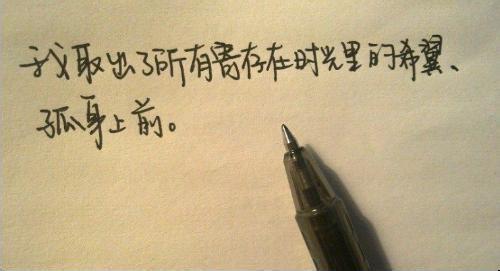 我取出了所有寄存在时光里的希翼、
孤身上前。